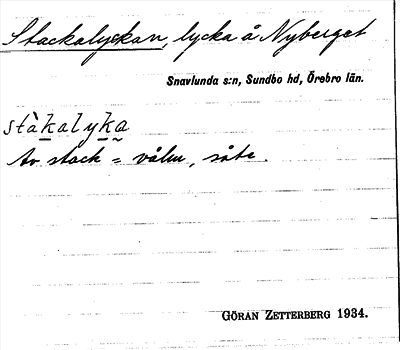 Stackalyckan, lycka å Nyberget
Snavlunda s:n, Sundbo hd, Örebro län.
stàkalyka
Av stack = vålm, såte.
GÖRAN ZETTERBERG 1934.